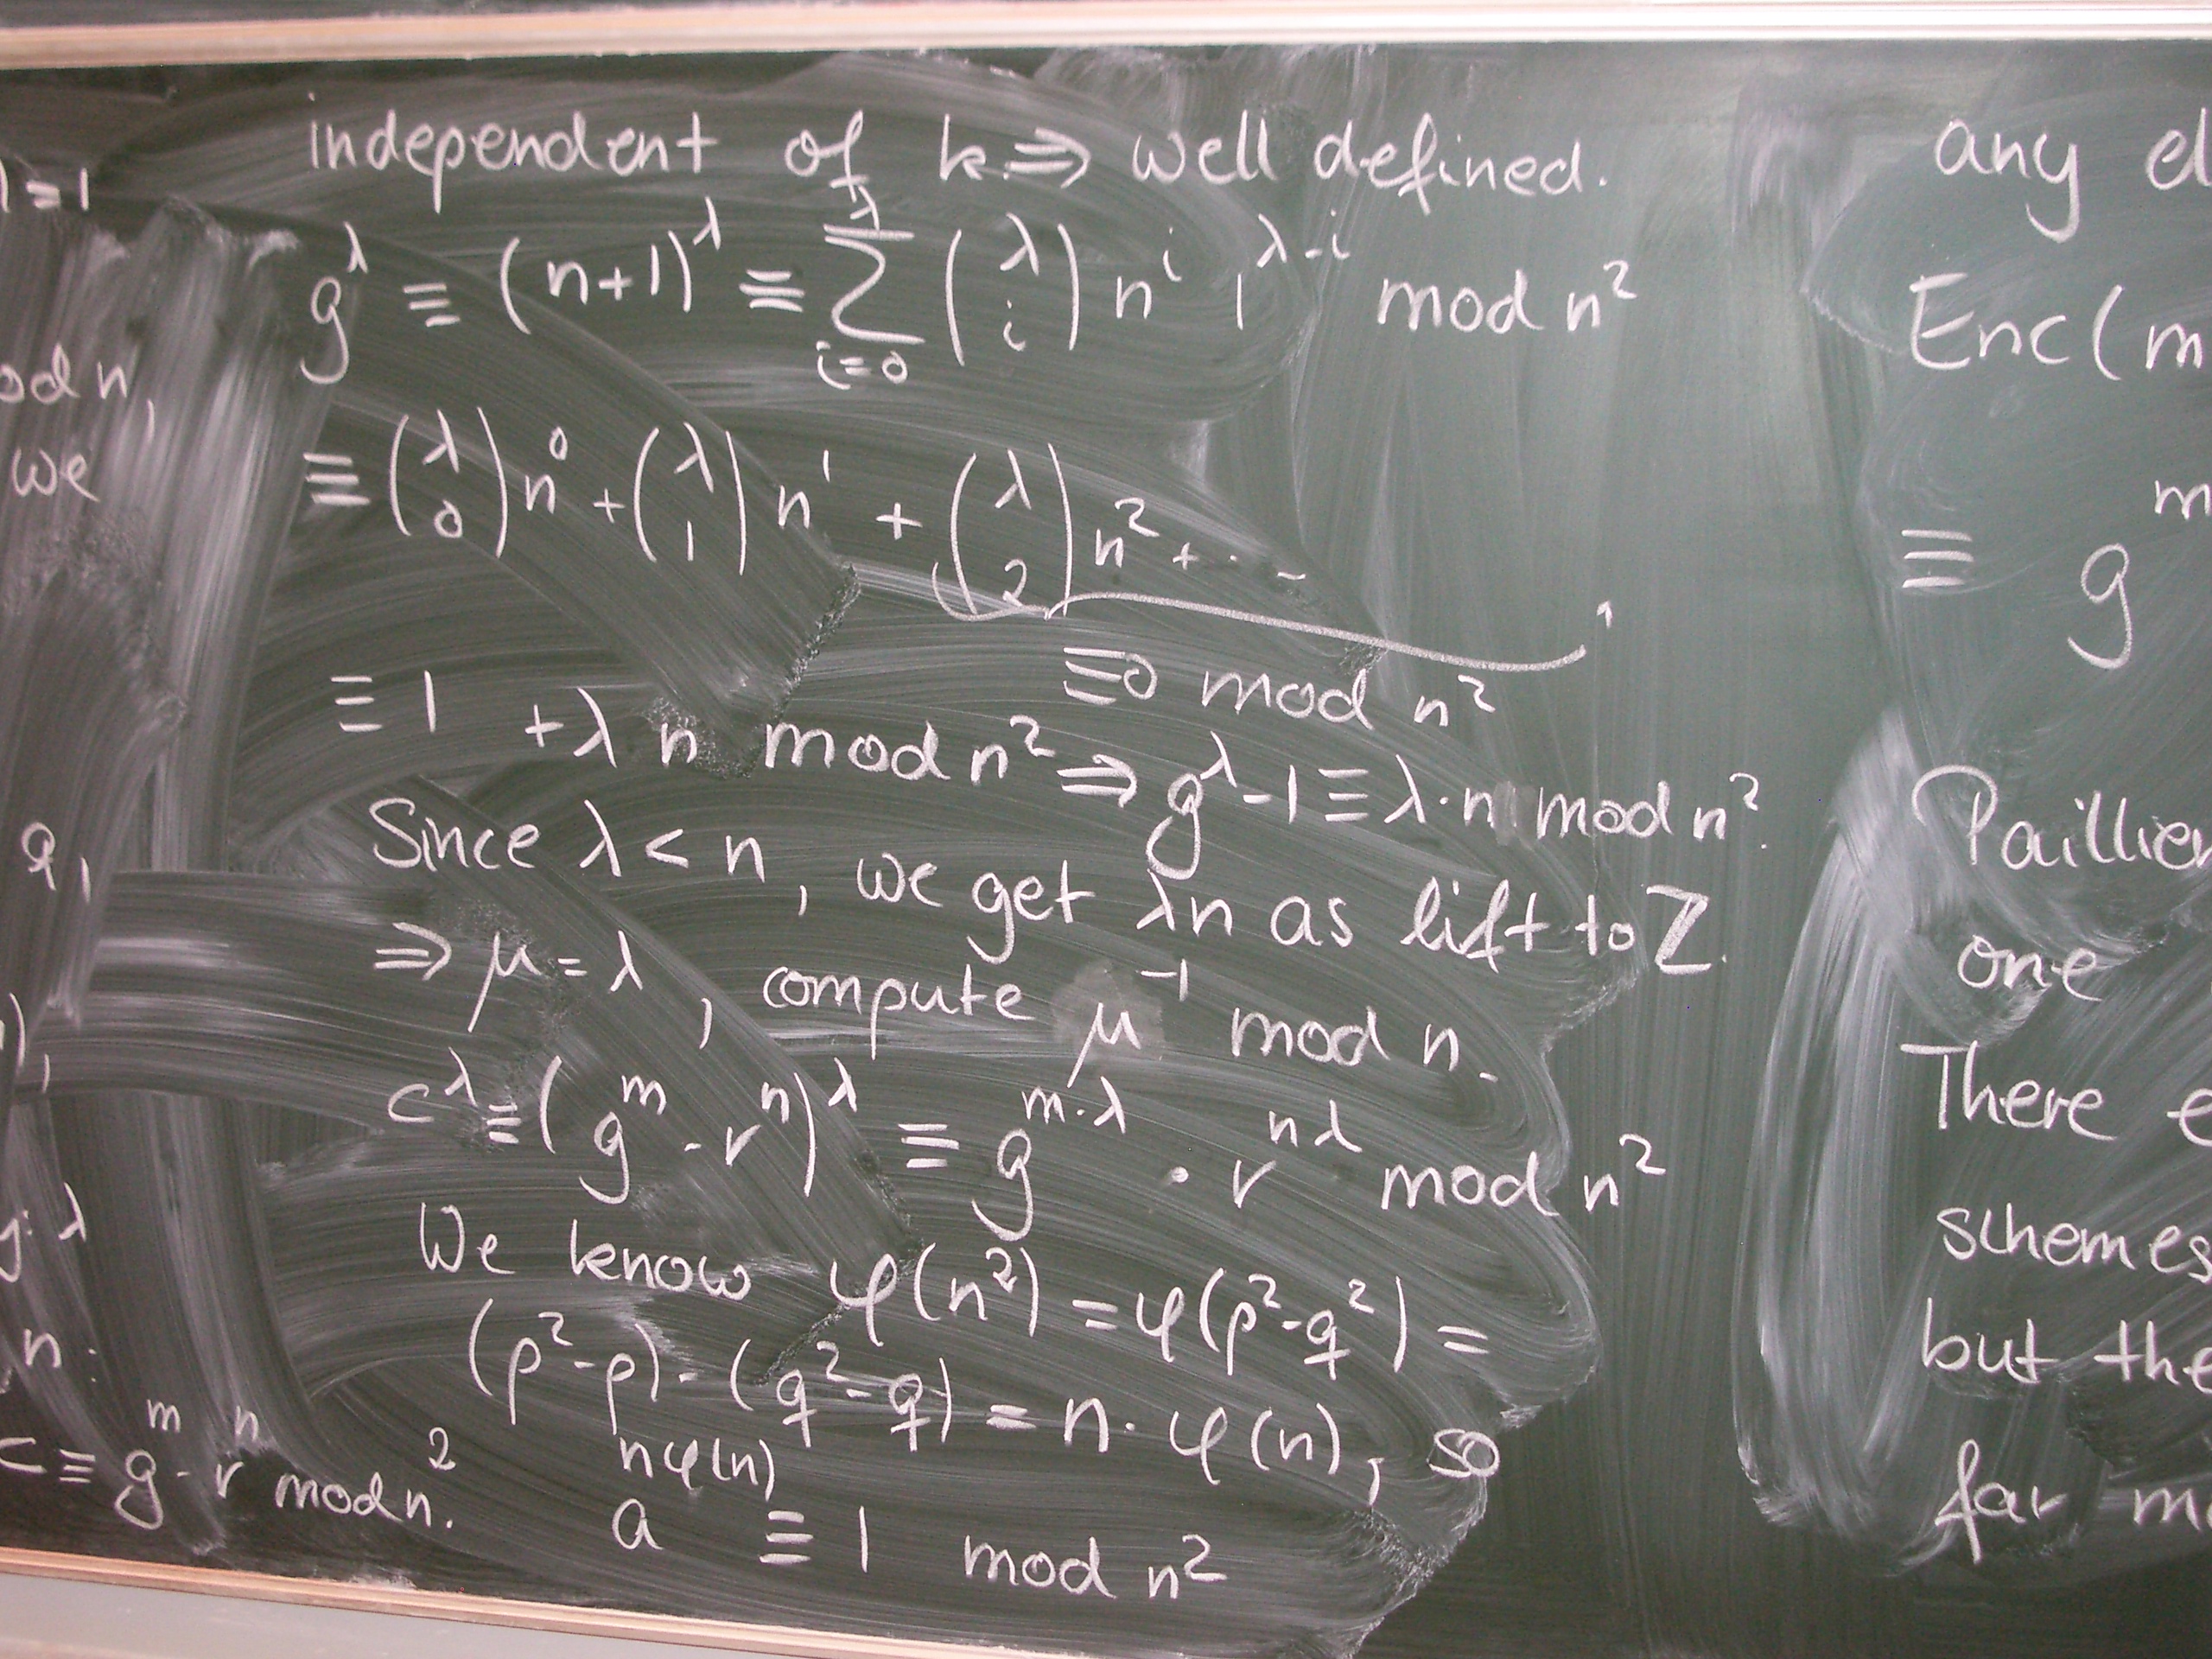 ) = 1
od n,
we
q,
),
λ
n.
c ≡ g^m · r^n mod n^2.
independent of k ⇒ well defined.
g^λ ≡ (n+1)^λ ≡ ∑_{i=0}^{λ} (λ i) n^i 1^{λ-i} mod n^2
≡ (λ 0) n^0 + (λ 1) n^1 + (λ 2) n^2 + ...
≡ 0 mod n^2
≡ 1 + λ n mod n^2 ⇒ g^λ - 1 ≡ λ · n mod n^2.
Since λ < n, we get λn as lift to ℤ.
⇒ μ = λ, compute μ^{-1} mod n.
c^λ ≡ (g^m · r^n)^λ ≡ g^{m·λ} · r^{nλ} mod n^2
We know φ(n^2) = φ(p^2 · q^2) =
(p^2 - p) · (q^2 - q) = n · φ(n), so
a^{nφ(n)} ≡ 1 mod n^2
any el
Enc(m
≡ g^m
Paillier
one
There e
schemes
but the
far m